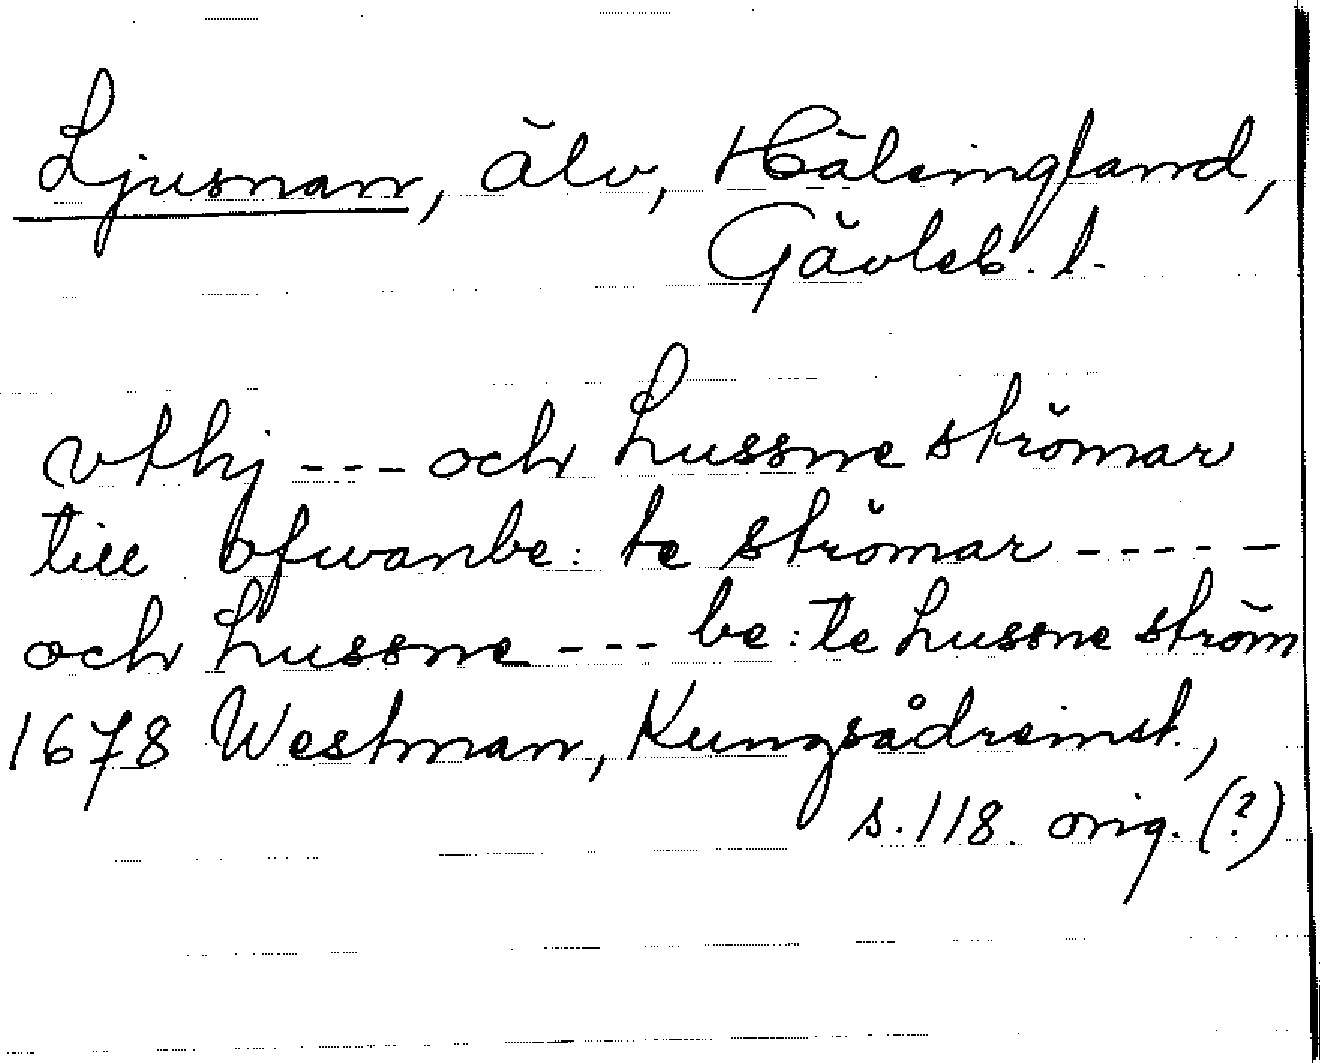 Ljusnan, älv, Hälsingland,
Gävleb. l.
vthj --- och Lussne strömar
till ofwanbe: te strömar -----
och Lussne --- be: te Lussne ström
1678 Westman, Kungsådreinst.,
s. 118. orig. (?)